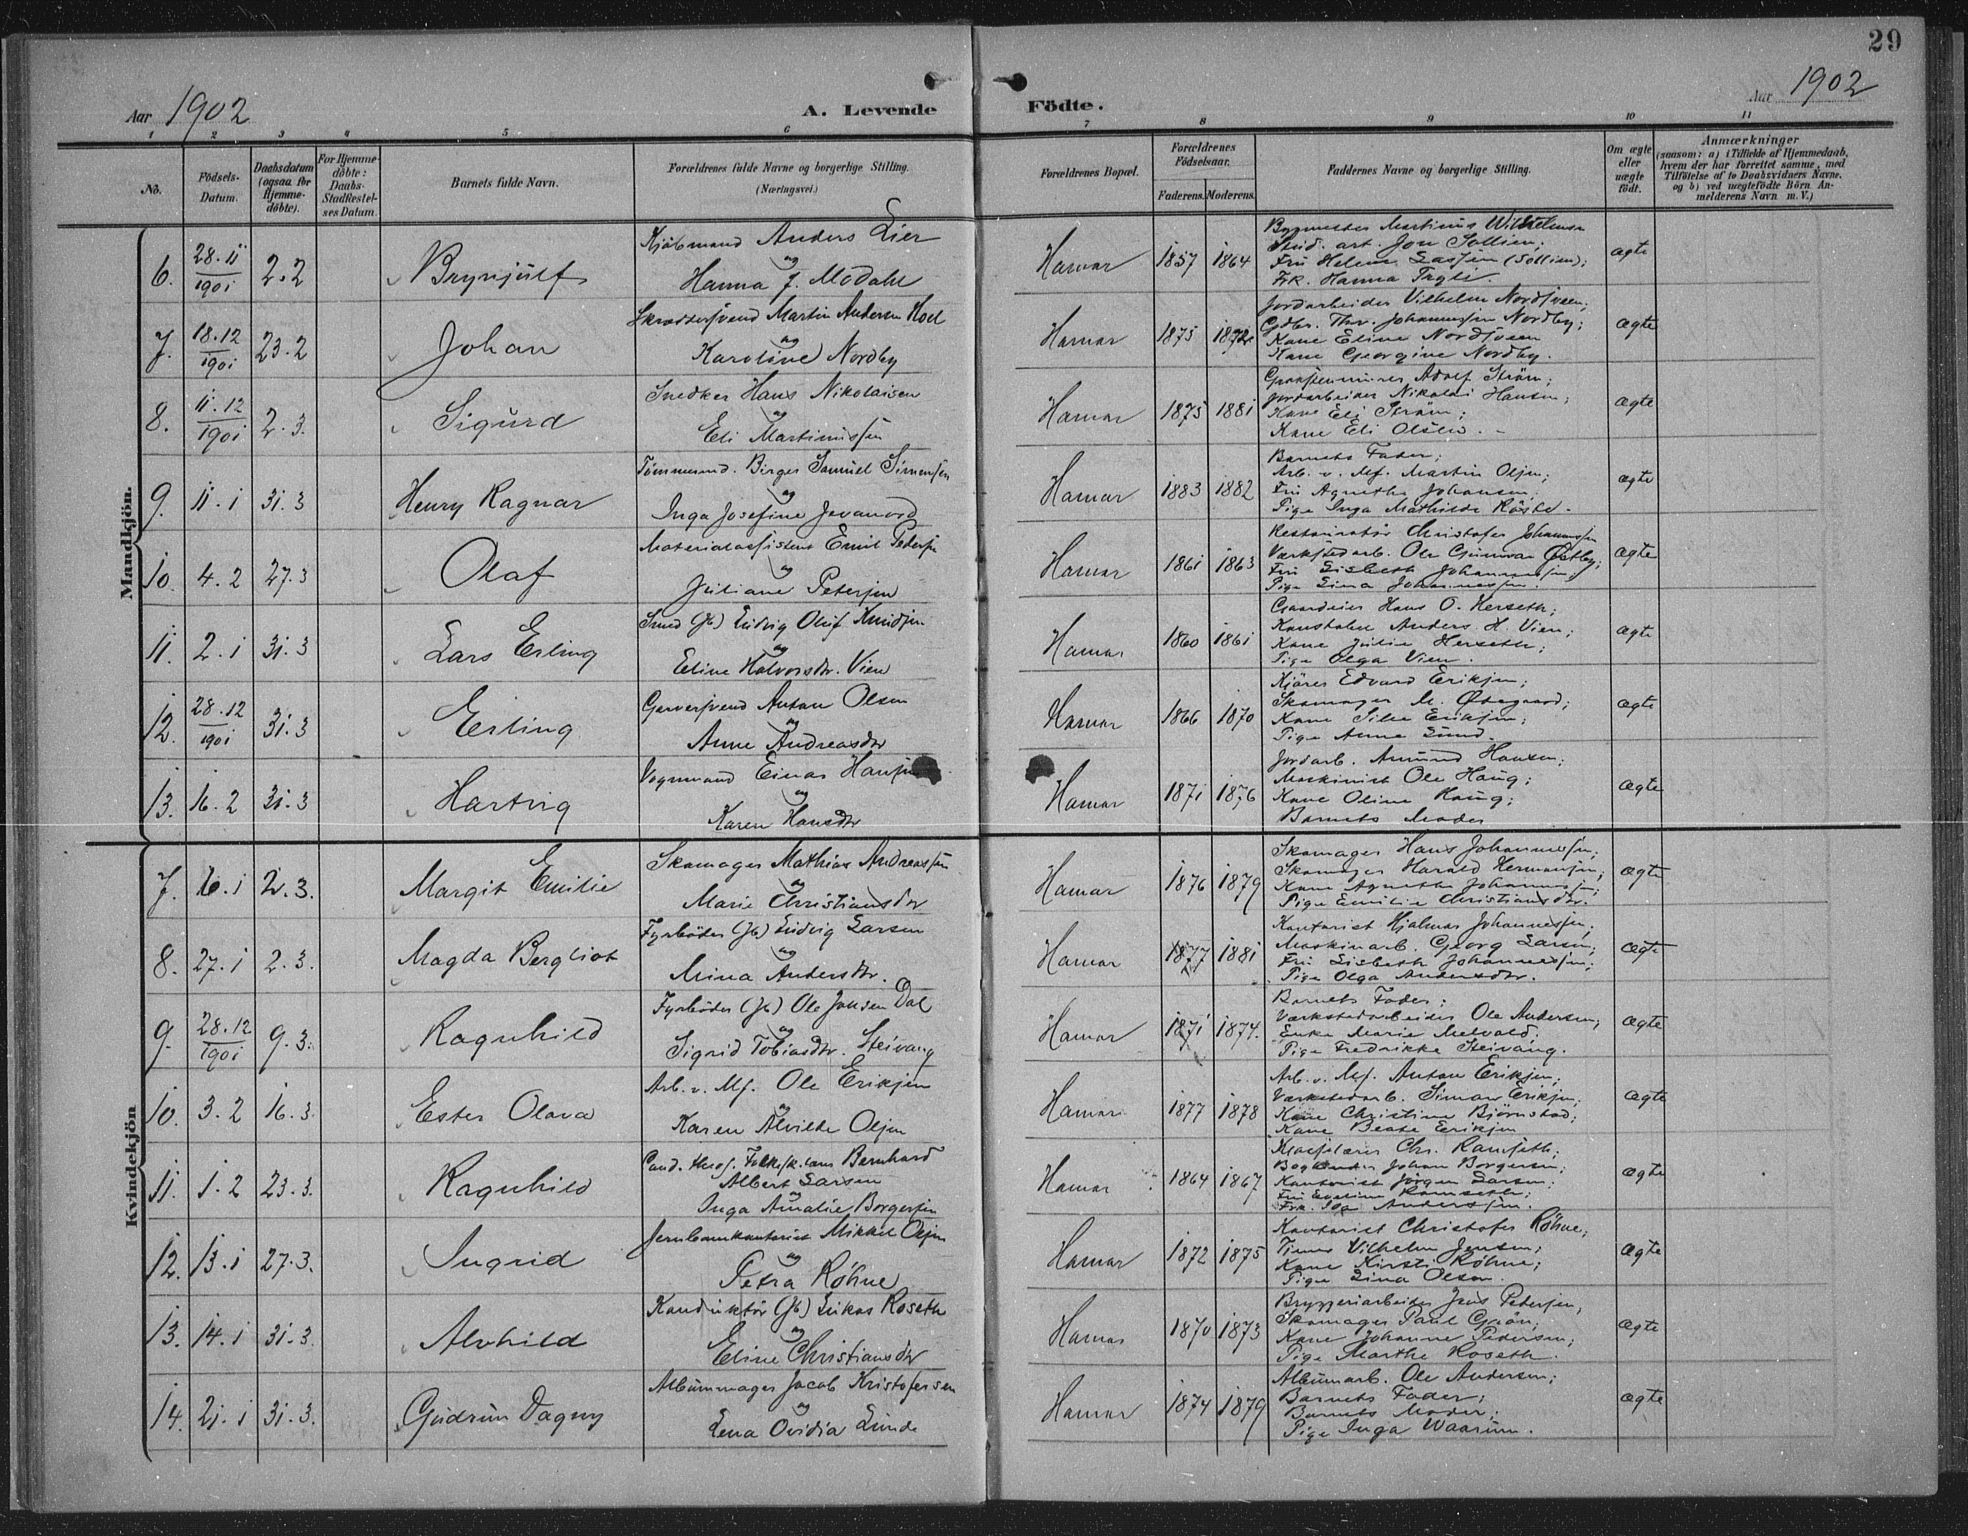 29
Aar 1902
A. Levende
Födte.
Aar 1902
1 2 3 4 5 6 7 8 9 10 11
No.
Födsels-Datum.
Daabsdatum (ogsaa for Hjemme-döbte).
For Hjemme-döbte: Daabs-Stadfæstel-ses Datum.
Barnets fulde Navn.
Forældrenes fulde Navne og borgerlige Stilling.
(Næringsvei.)
Forældrenes Bopæl.
Forældrenes Födselsaar.
Faderens. Moderens.
Faddernes Navne og borgerlige Stilling.
Om ægte eller uægte födt.
Anmærkninger
(saasom: a) i Tilfælde af Hjemmedaab,
hvem der har forrettet samme, med
Tilföielse af to Daabsvidners Navne,
og b) ved uægtefödte Börn An-
melderens Navn m. V.)
Mandkjön.
6. 28.11 1901 2.2 Brynjulf
Kjöbmand Anders Lier
og
Hanna J. Modahl
Hamar 1857 1864
Bygmester Martinus Wilhelmsen
Stud. art. Jon Sollien;
Fru Helene Lassen (Sollien);
Frk. Hanna Trgli.
ægte
7. 18.12 1901 23.2 Johan
Skræddersvend Martin Andersen Hoel
og
Karoline Nordby
Hamar 1875 1872
Jordarbeider Vilhelm Nordsveen;
Gdbr. Thv. Johannessen Nordby;
Kone Eline Nordsveen
Kone Georgine Nordby.
ægte
8. 11.12 1901 2.3. Sigurd
Snedker Hans Nikolaisen
og
Eli Martinussen
Hamar 1875 1881
Adolf Ström;
Jordarbeider Nikolai Hansen;
Kone Eli Ström;
Kone Eli Olsen.
ægte
9. 11.1 31.3 Henry Ragnar
Tömmermd. Birger Samuel Simensen
og
Inga Josefine
Hamar 1883 1882
Barnets Fader;
Arb. v. Mj. Martin Olsen;
Fru Agnethe Johansen;
Pige Inga Mathilde Röste.
ægte
10. 4.2 27.3 Olaf
Materialassistent Emil Pedersen
og
Juliane Petersen
Hamar 1861 1863
Restauratör Christofer Johannessen
Værkstedarb. Ole Gunnar Østby;
Fru Lisbeth Johannessen;
Pige Lina Johannessen.
ægte
11. 2.1 31.3 Lars Erling
Smed (Jb) Ludvig Oluf Knudsen
og
Eline Halvorsdtr. Vien
Hamar 1860 1861
Gaardeier Hans O. Herseth;
Konstabel Anders H. Vien;
Kone Julie Herseth;
Pige Olga Vien.
ægte
12. 28.12 1901 31.3 Erling
Garversvend Anton Olsen
og
Anne Andreasdtr
Hamar 1866 1870
Kjörer Edvard Eriksen;
Skomager M. Østgaard;
Kone Silie Eriksen;
Pige Anna Lund.
ægte
13. 16.2 31.3 Hartvig
Vognmand Einar Hansen
og
Karen Hansdtr
Hamar 1871 1876
Jordarb. Amund Hansen;
Maskinist Ole Haug;
Kone Oline Haug;
Barnets Moder
ægte
Kvindekjön
7. 16.1 2.3. Margit Emilie
Skomager Mathias Andreassen
og
Marie Christiansdtr
Hamar 1876 1879
Skomager Hans Johannessen;
Skomager Harald Hermansen;
Kone Agnethe Johannessen;
Pige Emilie Christiansdtr.
ægte
8. 27.1 2.3. Magda Bergliot
Fyrböder (Jb) Ludvig Larsen
og
Mina Andersdtr.
Hamar 1877 1881
Kontorist Hjalmar Johannessen;
Maskinarb. Georg Larsen;
Fru Lisbeth Johannessen;
Pige Olga Andersdtr.
ægte
9. 28.12 1901 9.3. Ragnhild
Fyrböder (Jb) Ole Jonsen Dal
og
Sigrid Tobiasdtr. Steivang
Hamar 1871 1874.
Barnets Fader;
Værkstedarbeider Ole Andersen;
Enke Marie Melvold;
Pige Fredrikke Steivang.
ægte
10. 3.2 16.3. Ester Olava
Arb. v. Mj. Ole Eriksen
og
Karen Alvilde Olsen
Hamar 1877 1878
Arb. v. Mj. Anton Eriksen;
Værkstedarb. Simon Eriksen;
Kone Christine Björnstad;
Kone Beate Eriksen
ægte
11. 1.2 23.3. Ragnhild
Cand. theol. Folkesk.lærer Bernhard
Albert Larsen
og
Inga Amalie Borgersen
Hamar 1864 1867
Chr. Ramseth;
Johan Borgersen;
Kontorist Jörgen Larsen;
Fru Eveline Ramseth;
Frk. Andersen.
ægte
12. 13.1 27.3. Ingrid
Jernbanekontorist Mikkel Olsen
og
Petra Röhne
Hamar 1872 1875
Kontorist Christofer Röhne;
Vilhelm Jensen;
Kone Kirsti Röhne;
Pige Lina Olsen.
ægte
13. 14.1 31.3. Alvhild
Konduktör (Jb) Lukas Roseth
og
Eline Christiansdtr
Hamar 1870 1873
Bryggeriarbeider Jens Pedersen;
Skomager Paul Grön;
Kone Johanne Pedersen;
Pige Marthe Roseth.
ægte
14. 21.1 31.3. Gudrun Dagny
Albummager Jacob Kristofersen
og
Lena Ovidia Lunde
Hamar 1874 1879
Albumarb. Ole Andersen;
Barnets Fader;
Barnets Moder;
Pige Inga Waarum.
ægte